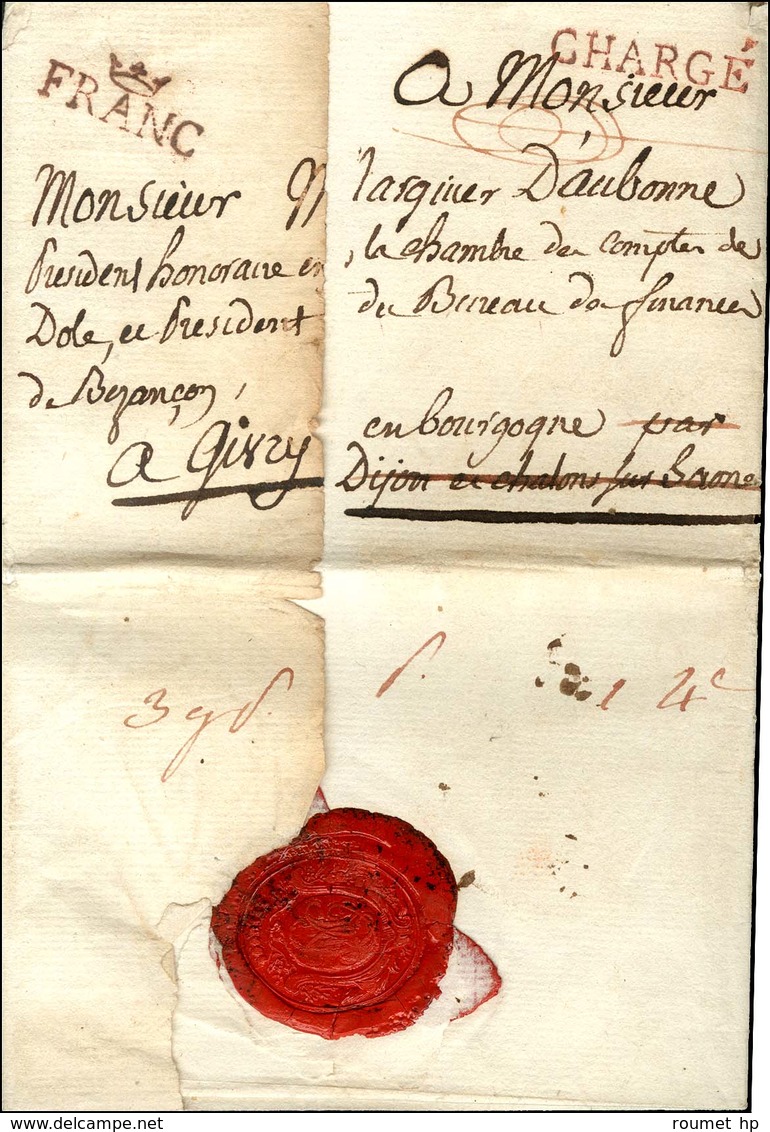 FRANC
CHARGÉ
A Monsieur
Monsieur Marquier D'aubonne
President honoraire en la chambre des comptes de
Dole, et President du Bureau des finances
de Bezançon,
a Givry en bourgogne par
Dijon et chalons sur Saone
4
roumet hp